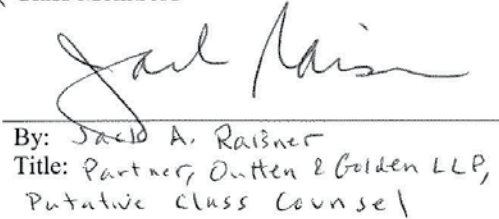 Jack Rais
By: Jack A. Raisner
Title: Partner, Outten & Golden LLP,
Putative Class Counsel